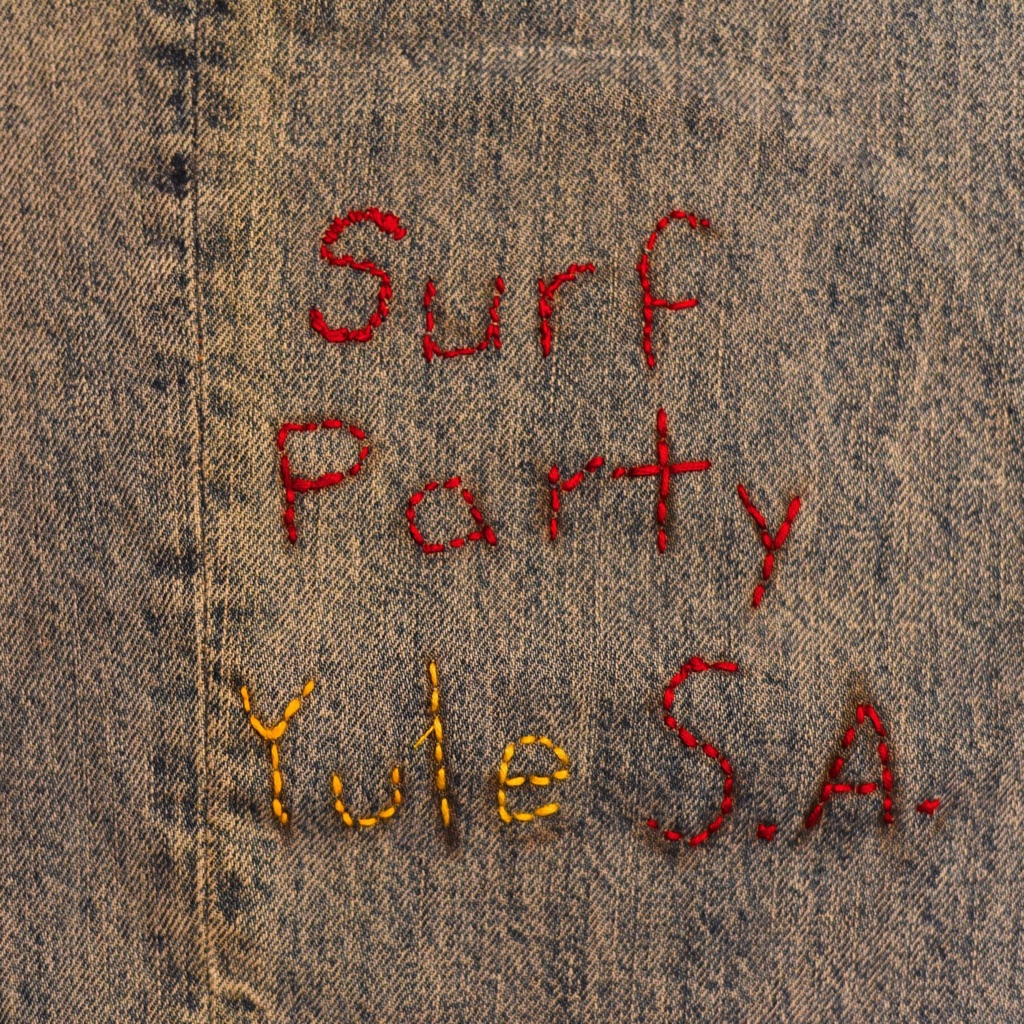 Surf
Party
Yule S.A.